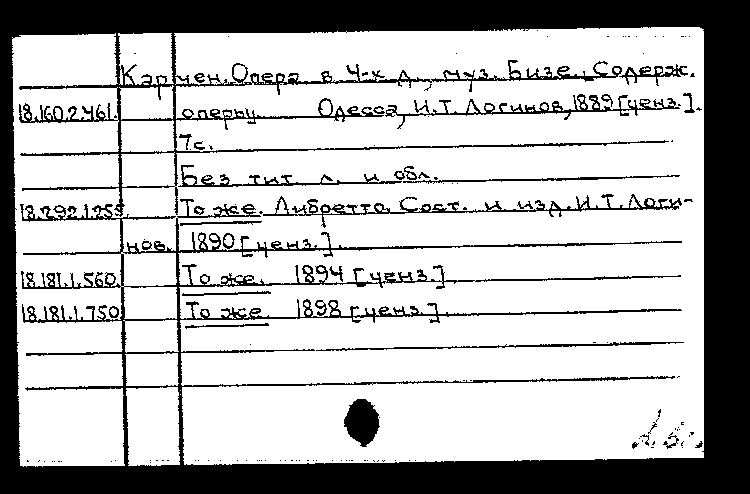 Кармен. Опера в 4-х д., муз. Бизе. Содерж.
18.160.2.461. оперы. Одесса, И.Т. Логинов, 1889 [ценз.].
7с.
Без тит. л. и обл.
18.292.1.255. То же. Либретто. Сост. и изд. И.Т. Логи-
нов. 1890 [ценз.].
18.181.1.560. То же. 1894 [ценз.]
18.181.1.750 То же. 1898 [ценз.].